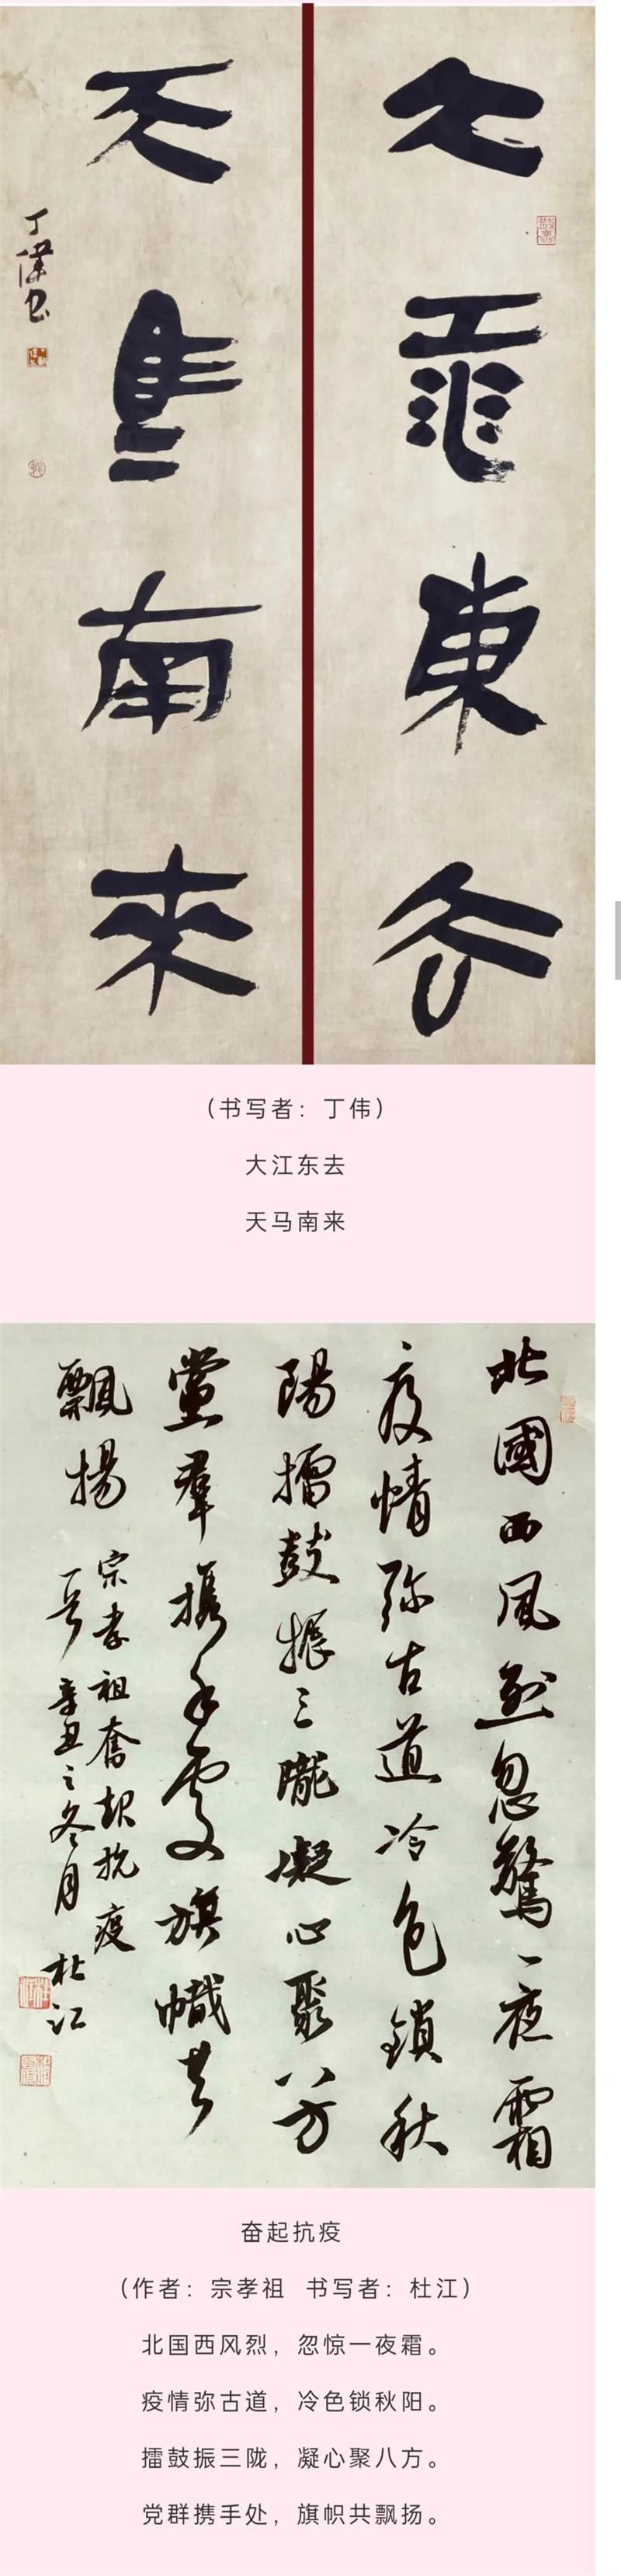 大江東去
天馬南來
丁偉书
(书写者：丁伟)
大江东去
天马南来
北國西風烈忽驚一夜霜
疫情弥古道冷色鎖秋
陽擂鼓振三隴凝心聚八方
黨羣携手處旗幟共
飄揚
宗孝祖奮起抗疫
辛丑之冬月
杜江
奋起抗疫
(作者：宗孝祖 书写者：杜江)
北国西风烈，忽惊一夜霜。
疫情弥古道，冷色锁秋阳。
擂鼓振三陇，凝心聚八方。
党群携手处，旗帜共飘扬。